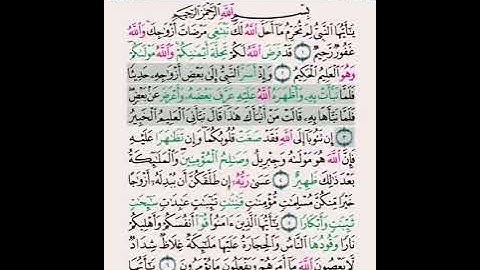 بِسْمِ اللَّهِ الرَّحْمَٰنِ الرَّحِيمِ
يَٰٓأَيُّهَا النَّبِيُّ لِمَ تُحَرِّمُ مَآ أَحَلَّ اللَّهُ لَكَ تَبْتَغِي مَرْضَاتَ أَزْوَٰجِكَ وَاللَّهُ
غَفُورٌ رَّحِيمٌ ١ قَدْ فَرَضَ اللَّهُ لَكُمْ تَحِلَّةَ أَيْمَٰنِكُمْ وَاللَّهُ مَوْلَىٰكُمْ
وَهُوَ الْعَلِيمُ الْحَكِيمُ ٢ وَإِذْ أَسَرَّ النَّبِيُّ إِلَىٰ بَعْضِ أَزْوَٰجِهِۦ حَدِيثًا
فَلَمَّا نَبَّأَتْ بِهِۦ وَأَظْهَرَهُ اللَّهُ عَلَيْهِ عَرَّفَ بَعْضَهُۥ وَأَعْرَضَ عَنۢ بَعْضٍ
فَلَمَّا نَبَّأَهَا بِهِۦ قَالَتْ مَنْ أَنۢبَأَكَ هَٰذَا قَالَ نَبَّأَنِيَ الْعَلِيمُ الْخَبِيرُ
٣ إِن تَتُوبَآ إِلَى اللَّهِ فَقَدْ صَغَتْ قُلُوبُكُمَا وَإِن تَظَٰهَرَا عَلَيْهِ
فَإِنَّ اللَّهَ هُوَ مَوْلَىٰهُ وَجِبْرِيلُ وَصَٰلِحُ الْمُؤْمِنِينَ وَالْمَلَٰٓئِكَةُ
بَعْدَ ذَٰلِكَ ظَهِيرٌ ٤ عَسَىٰ رَبُّهُۥٓ إِن طَلَّقَكُنَّ أَن يُبْدِلَهُۥٓ أَزْوَٰجًا
خَيْرًا مِّنكُنَّ مُسْلِمَٰتٍ مُّؤْمِنَٰتٍ قَٰنِتَٰتٍ تَٰٓئِبَٰتٍ عَٰبِدَٰتٍ سَٰٓئِحَٰتٍ
ثَيِّبَٰتٍ وَأَبْكَارًا ٥ يَٰٓأَيُّهَا الَّذِينَ ءَامَنُوا قُوٓا أَنفُسَكُمْ وَأَهْلِيكُمْ
نَارًا وَقُودُهَا النَّاسُ وَالْحِجَارَةُ عَلَيْهَا مَلَٰٓئِكَةٌ غِلَاظٌ شِدَادٌ
لَّا يَعْصُونَ اللَّهَ مَآ أَمَرَهُمْ وَيَفْعَلُونَ مَا يُؤْمَرُونَ ٦ يَٰٓأَيُّهَا